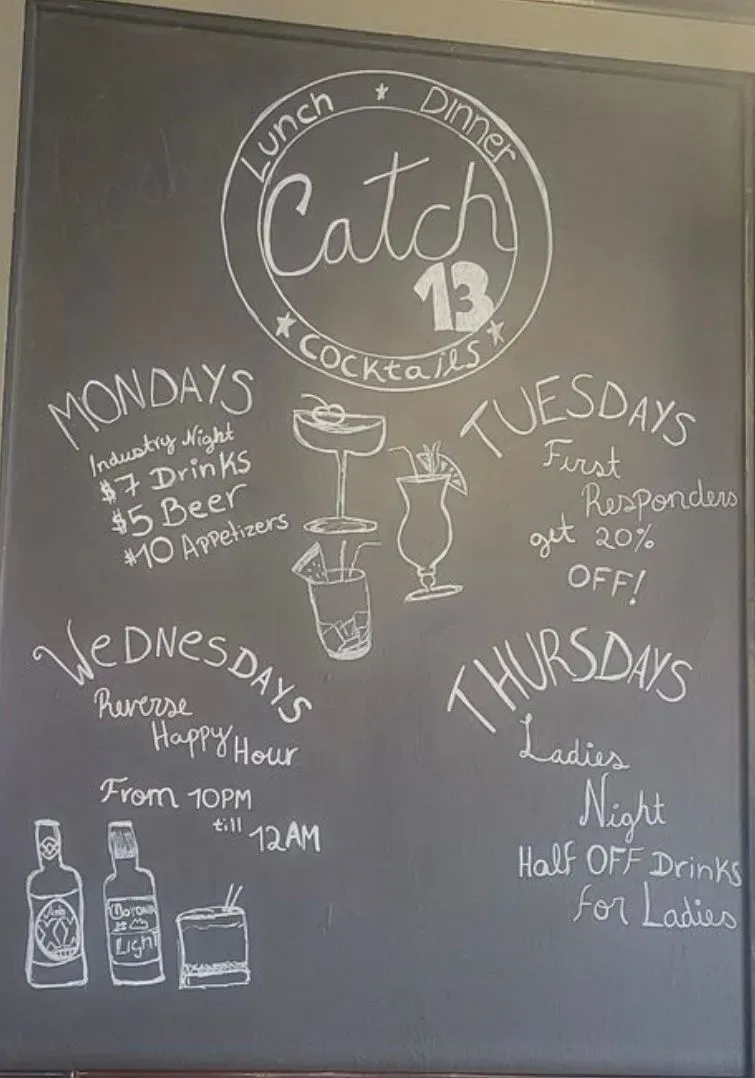 Lunch ★ Dinner
Catch
13
★ Cocktails ★
MONDAYS
Industry Night
$7 Drinks
$5 Beer
$10 Appetizers
TUESDAYS
First
Responders
get 20%
OFF!
WEDNESDAYS
Reverse
Happy Hour
From 10PM
till 12AM
THURSDAYS
Ladies
Night
Half OFF Drinks
for Ladies
XX
Light